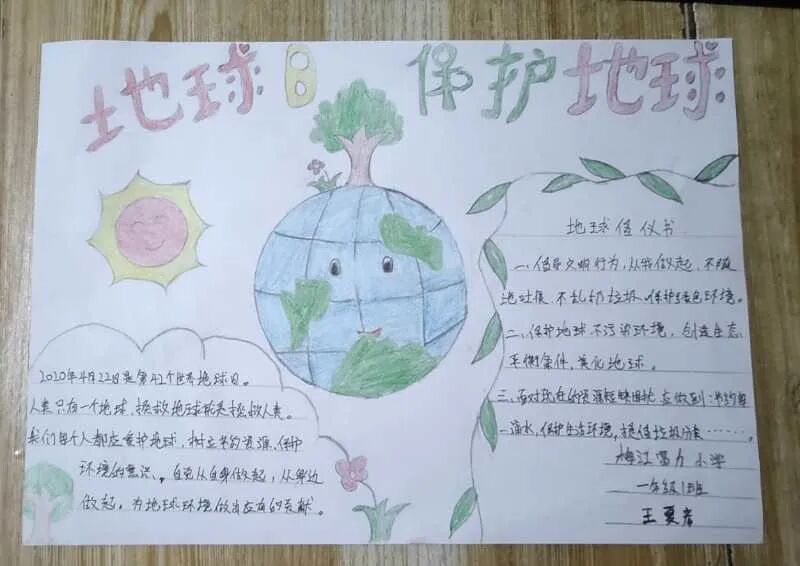 地球日 保护地球
地球倡仪书
一、倡导文明行为,从我做起,不随
地吐痰、不乱扔垃圾、保护绿色环境。
二、保护地球、不污染环境,创造生态
平衡条件,美化地球。
三、面对现在的资源短缺困扰,应做到:节约每
一滴水,保护生活环境,提倡垃圾分类……。
小学
一年级1班
王夏
2020年4月22日是第42个世界地球日。
人类只有一个地球,拯救地球就是拯救人类。
我们每个人都应爱护地球,树立节约资源、保护
环境的意识、自觉从自身做起,从身边
做起,为地球环境做出应有的贡献。